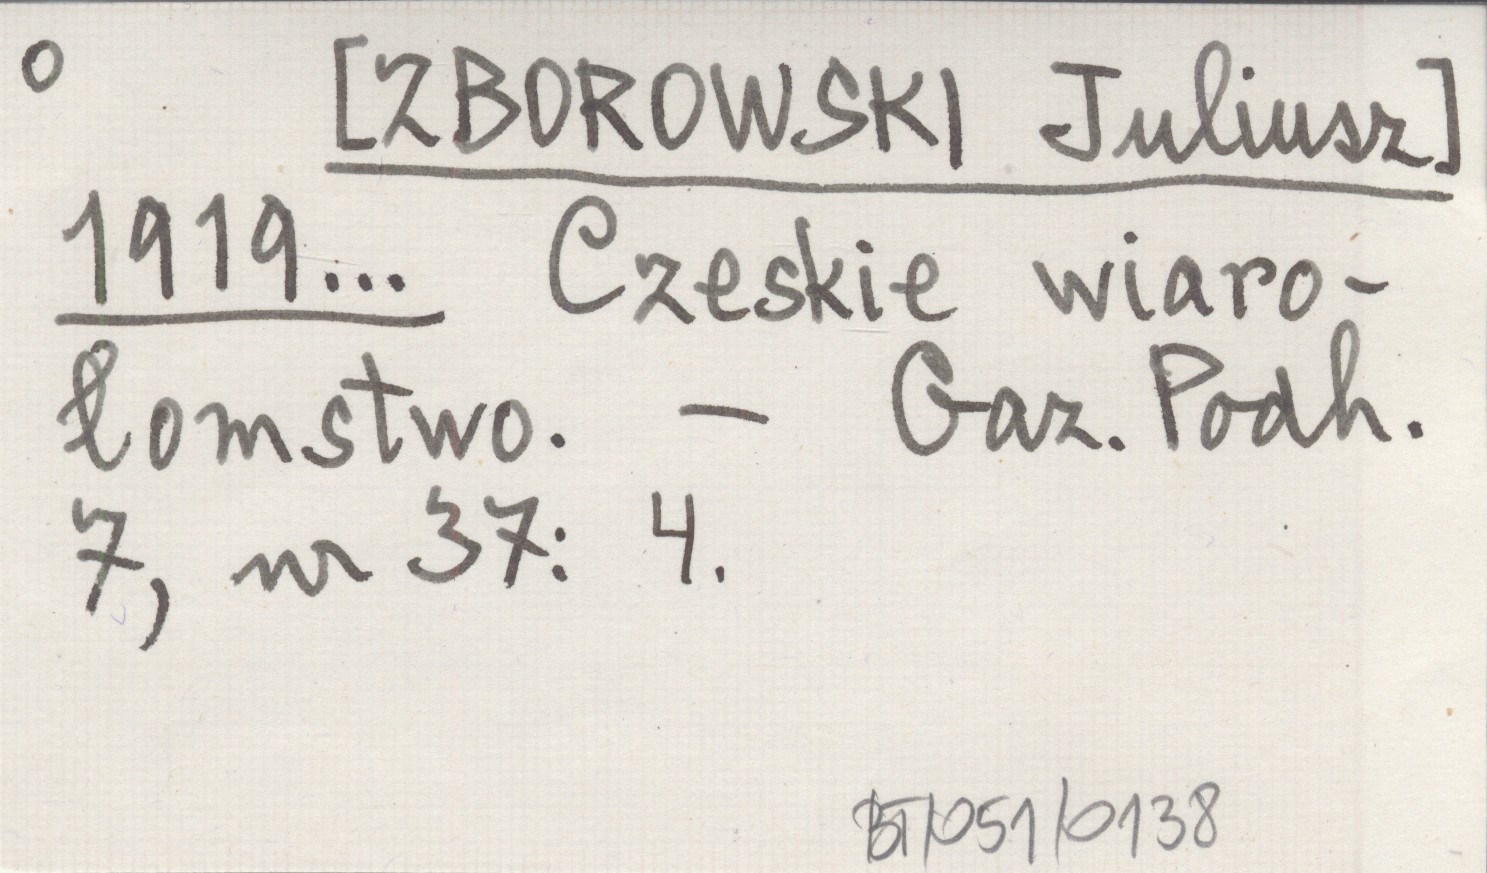 o [ZBOROWSKI Juliusz]
1919... Czeskie wiaro-
łomstwo. — Gaz. Podh.
7, nr 37: 4.
BT/051/0138